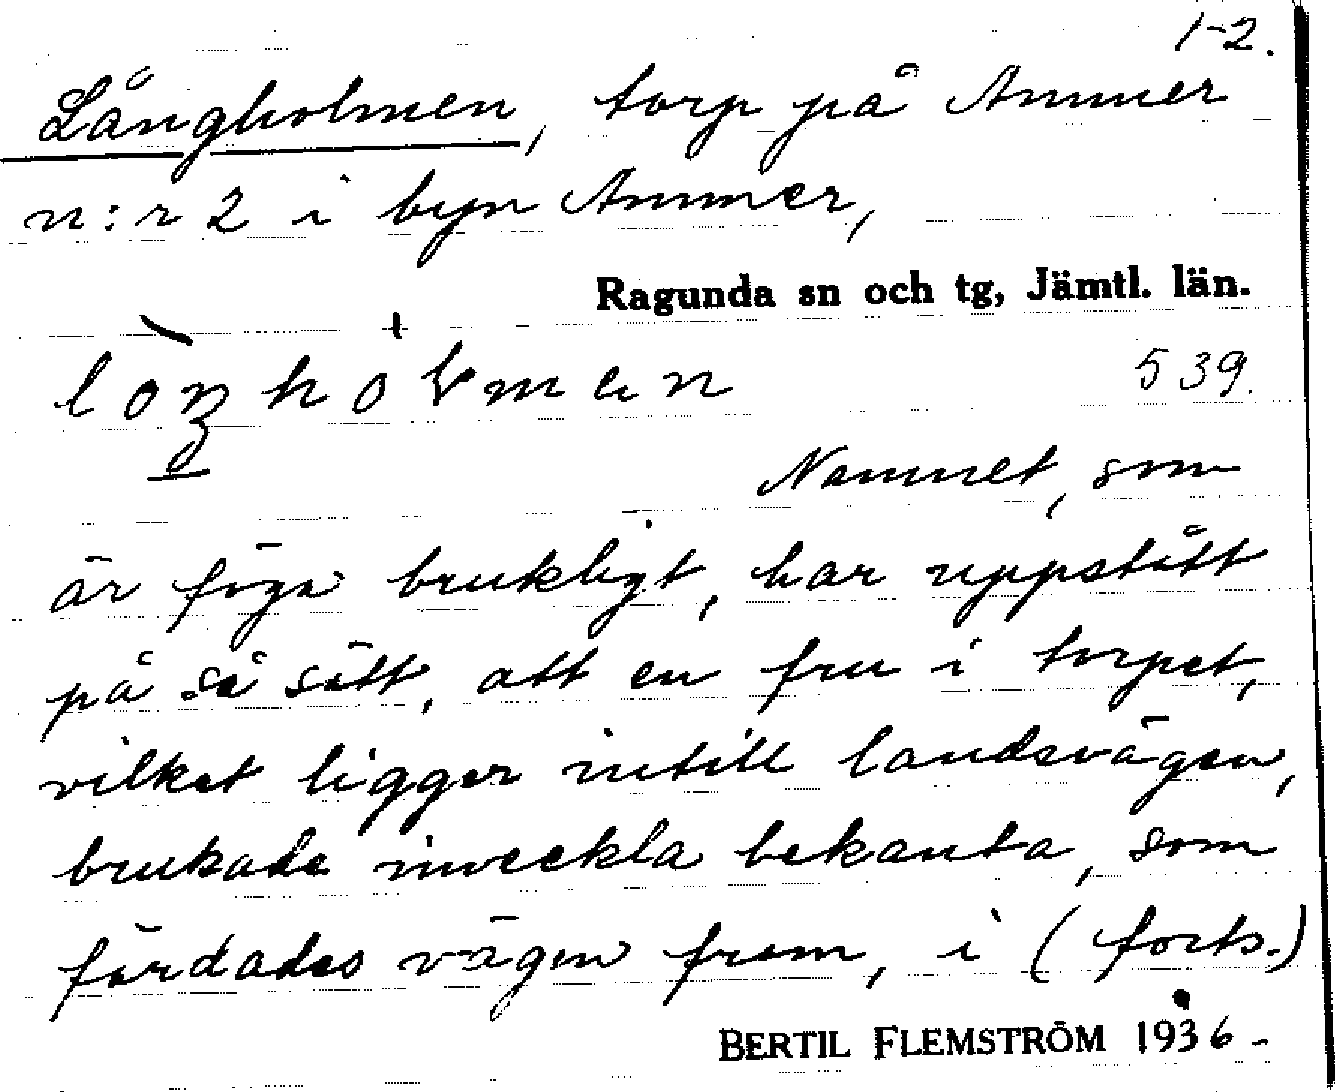 1-2.
Långholmen, torp på Ammer
n:r 2 i byn Ammer,
Ragunda sn och tg, Jämtl. län.
539.
Namnet, som
är föga brukligt, har uppstått
på så sätt, att en fru i torpet,
vilket ligger intill landsvägen,
brukade inveckla bekanta, som
färdades vägen fram, i (forts.)
BERTIL FLEMSTRÖM 1936-